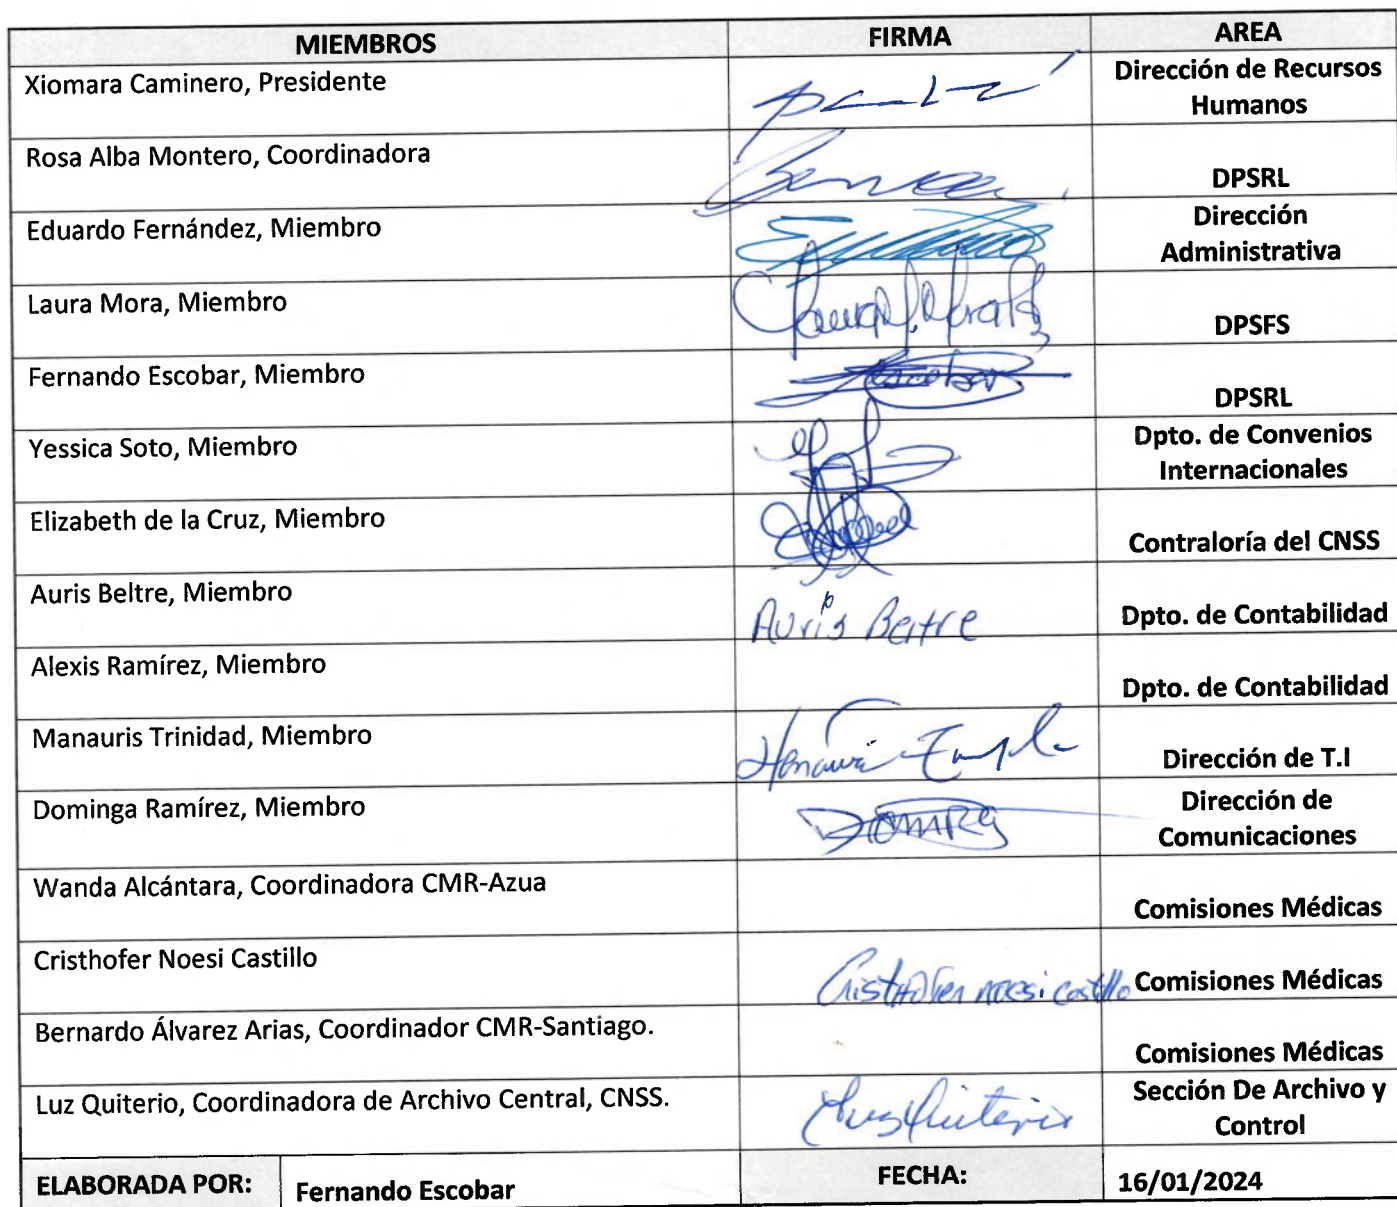 MIEMBROS FIRMA AREA
Xiomara Caminero, Presidente
Dirección de Recursos
Humanos
Rosa Alba Montero, Coordinadora
DPSRL
Eduardo Fernández, Miembro
Dirección
Administrativa
Laura Mora, Miembro
DPSFS
Fernando Escobar, Miembro
Escobar
DPSRL
Yessica Soto, Miembro
Dpto. de Convenios
Internacionales
Elizabeth de la Cruz, Miembro
Contraloría del CNSS
Auris Beltre, Miembro
Auris Beltre
Dpto. de Contabilidad
Alexis Ramírez, Miembro
Dpto. de Contabilidad
Manauris Trinidad, Miembro
Dirección de T.I
Dominga Ramírez, Miembro
Dirección de
Comunicaciones
Wanda Alcántara, Coordinadora CMR-Azua
Comisiones Médicas
Cristhofer Noesi Castillo
Cristhofer Noesi Castillo
Comisiones Médicas
Bernardo Álvarez Arias, Coordinador CMR-Santiago.
Comisiones Médicas
Luz Quiterio, Coordinadora de Archivo Central, CNSS.
Luz Quiterio
Sección De Archivo y
Control
ELABORADA POR: Fernando Escobar FECHA: 16/01/2024